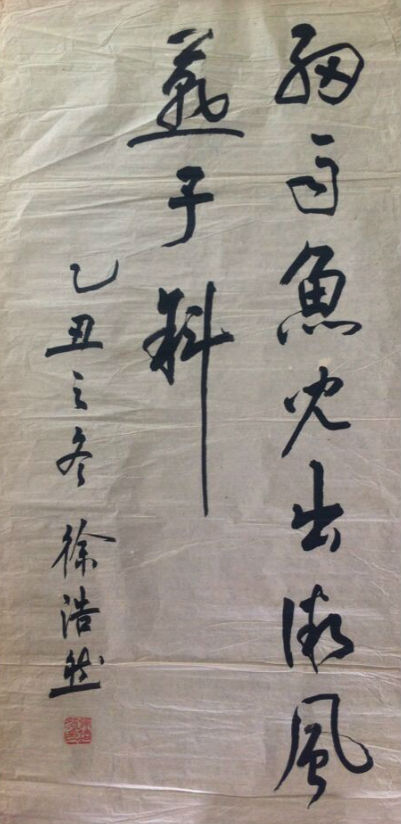 细雨鱼儿出微风
燕子斜
乙丑之冬 徐浩然